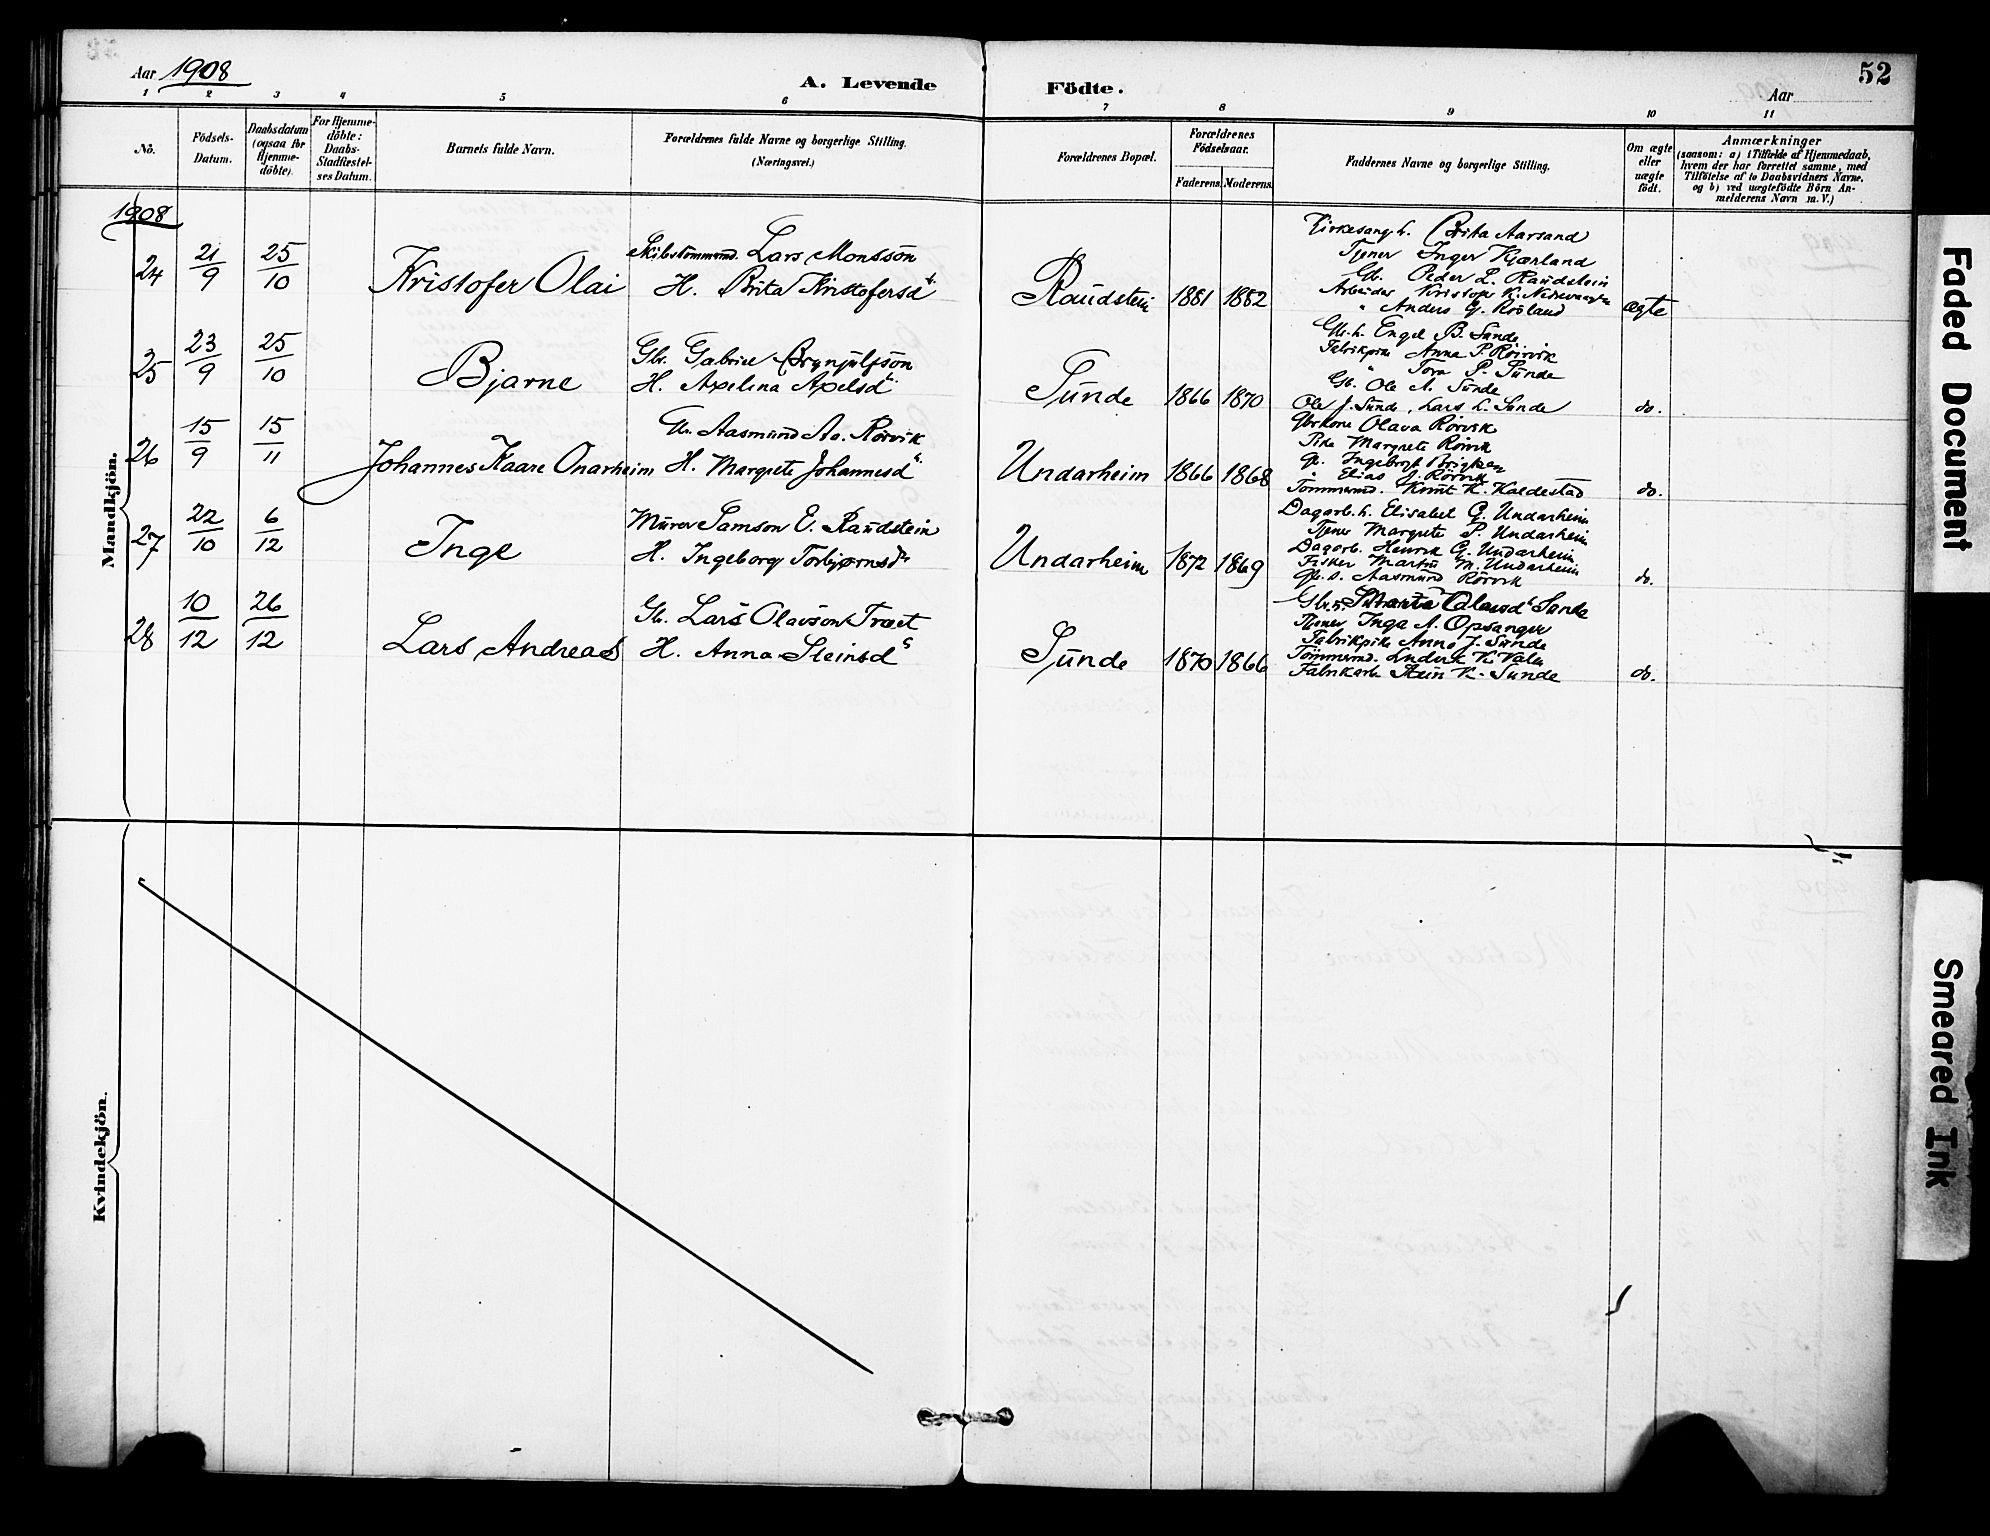 Aar 1908
A. Levende
Födte.
52
Aar
1 2 3 4 5 6 7 8 9 10 11
No.
Födsels-
Datum.
Daabsdatum
(ogsaa for
Hjemme-
döbte).
For Hjemme-
döbte:
Daabs-
Stadfæstel-
ses Datum.
Barnets fulde Navn.
Forældrenes fulde Navne og borgerlige Stilling.
(Næringsvei.)
Forældrenes Bopæl.
Forældrenes
Födselsaar.
Faderens. Moderens.
Faddernes Navne og borgerlige Stilling.
Om ægte
eller
uægte
födt.
Anmærkninger
(saasom: a) i Tilfælde af Hjemmedaab,
hvem der har forrettet samme, med
Tilföielse af to Daabsvidners Navne,
og b) ved uægtefödte Börn An-
melderens Navn m. V.)
Mandkjön.
1908
24
21/9
25/10
Kristofer Olai
Skibstömmermd. Lars Monsson
H. Brita Kristofersd
Raudstein
1881 1882
Kirkesang. h. Brita Aarsand
Tjener Inger Kjærland
Gb. Peder L. Raudstein
Arbeider Kristofer K.
" Anders G. Röoland
ægte
25
23/9
25/10
Bjarne
Gbr. Gabriel Brynjulfson
H. Axelina Axelsd
Sunde
1866 1870
Gb. h. Engel B. Sunde
Fabrikpike Anna P. Rörvik
" Tora P. Sunde
Gb. Ole A. Sunde
Ole J. Sunde, Lars L. Sunde
do.
26
15/9
15/11
Johannes Kaare Onarheim
Gb. Aasmund Aa. Rörvik
H. Margrete Johannesd
Undarheim
1866 1868
Gbrkone Olava Rörvik
Pike Margrete Rörvik
Elias J. Rörvik
Tömmermd. Knut K. Kaldestad
do.
27
22/10
6/12
Inge
Murer Samson E. Raudstein
H. Ingeborg Torbjørnsd
Undarheim
1872 1869
Dagarb. h. Elisabet G. Undarheim
Tjener Margrete P. Undarheim
Dagarb. Henrik G. Undarheim
Fisker Martin M. Undarheim
Gb. s. Aasmund Rörvik
do.
28
10/12
26/12
Lars Andreas
Gb. Lars Olavson Træt
H. Anna Steinsd
Sunde
1870 1866
Olavsd Sunde
Tjener Inga A. Opsanger
Fabrikpike Anna J. Sunde
Tömmermd. Ludvik K. Valen
Fabrikarb Stein K. Sunde
do.
Kvindekjön.
Faded Document
Smeared Ink